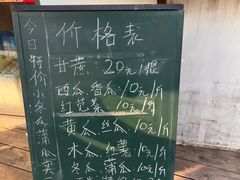 价格表
甘蔗：20元/根
西瓜、香瓜：10元/个
红范茶 10元/个
黄瓜、丝瓜：10元/个
木瓜、红薯 10元/个
冬瓜、蒲瓜 10元/个
今日特价小冬瓜蒲瓜卖